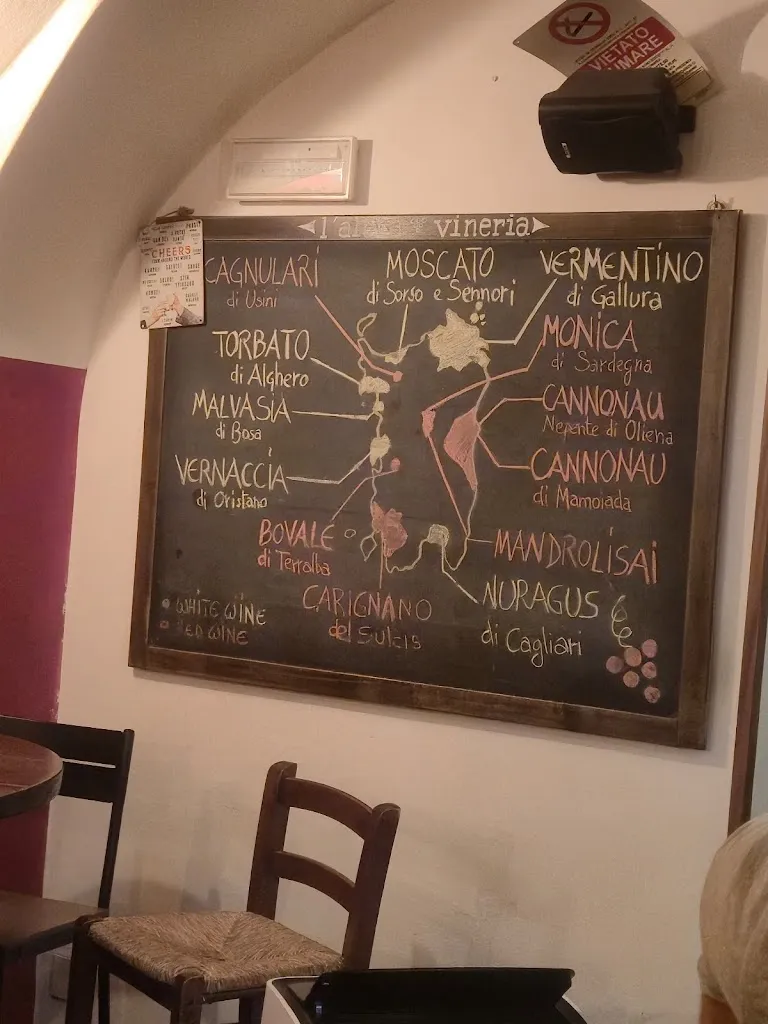 VIETATO
FUMARE
vineria
CHEERS
CAGNULARI
di Usini
MOSCATO
di Sorso e Sennori
VERMENTINO
di Gallura
TORBATO
di Alghero
MONICA
di Sardegna
MALVASIA
di Bosa
CANNONAU
Nepente di Oliena
VERNACCIA
di Oristano
CANNONAU
di Mamoiada
BOVALE
di Terralba
MANDROLISAI
CARIGNANO
del Sulcis
NURAGUS
di Cagliari
WHITE WINE
RED WINE